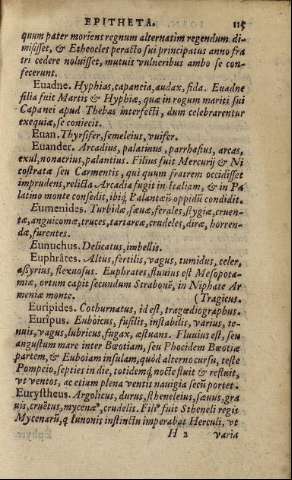 EPITHETA. 115
quum pater moriens regnum alternatim regendum di-
misisset, & Etheocles peracto sui principatus anno fra
tri cedere noluisset, mutuis vulneribus ambo se con-
fecerunt.
Euadne. Hyphias, capaneia, audax, fida. Euadne
filia fuit Martis & Hyphiæ, quæ in rogum mariti sui
Capanei apud Thebas interfecti, dum celebrarentur
exequiæ, se coniecit.
Euan. Thyrsifer, semeleius, vuifer.
Euander. Arcadius, palatinus, parrhasius, arcas,
exul, nonacrius, palantius. Filius fuit Mercurij & Ni
costratæ seu Carmentis, qui quum fratrem occidisset
imprudens, relicta Arcadia fugit in Italiam, & in Pa
latino monte consedit, ibiq; Palanteū oppidū condidit.
Eumenides. Turbidæ, sæuæ, ferales, stygiæ, cruen-
tæ, anguicomæ, truces, tartareæ, crudeles, diræ, horren-
dæ, furentes.
Eunuchus. Delicatus, imbellis.
Euphrâtes. Altus, fertilis, vagus, tumidus, celer,
assyrius, flexuosus. Euphrates, fluuius est Mesopota-
miæ, ortum capit secundum Strabonē, in Niphate Ar
meniæ monte. (Tragicus.
Euripides. Cothurnatus, id est, tragœdiographus.
Euripus. Euboicus, fusilis, instabilis, varius, te-
nuis, vagus, lubricus, fugax, æstuans. Fluuius est, seu
angustum mare inter Bœotiam, seu Phocidem Bœotiæ
partem, & Euboiam insulam, quod alterno cursu, teste
Pompeio, septies in die, totidemq; nocte fluit & refluit,
vt ventos, ac etiam plena ventis nauigia secū portet.
Eurystheus. Argolicus, durus, stheneleius, sæuus, gra
uis, cruētus, mycenæꝰ, crudelis. Filiꝰ fuit Stheneli regis
Mycenarū, q Iunonis instinctu imperabat Herculi, vt
H 2 varia